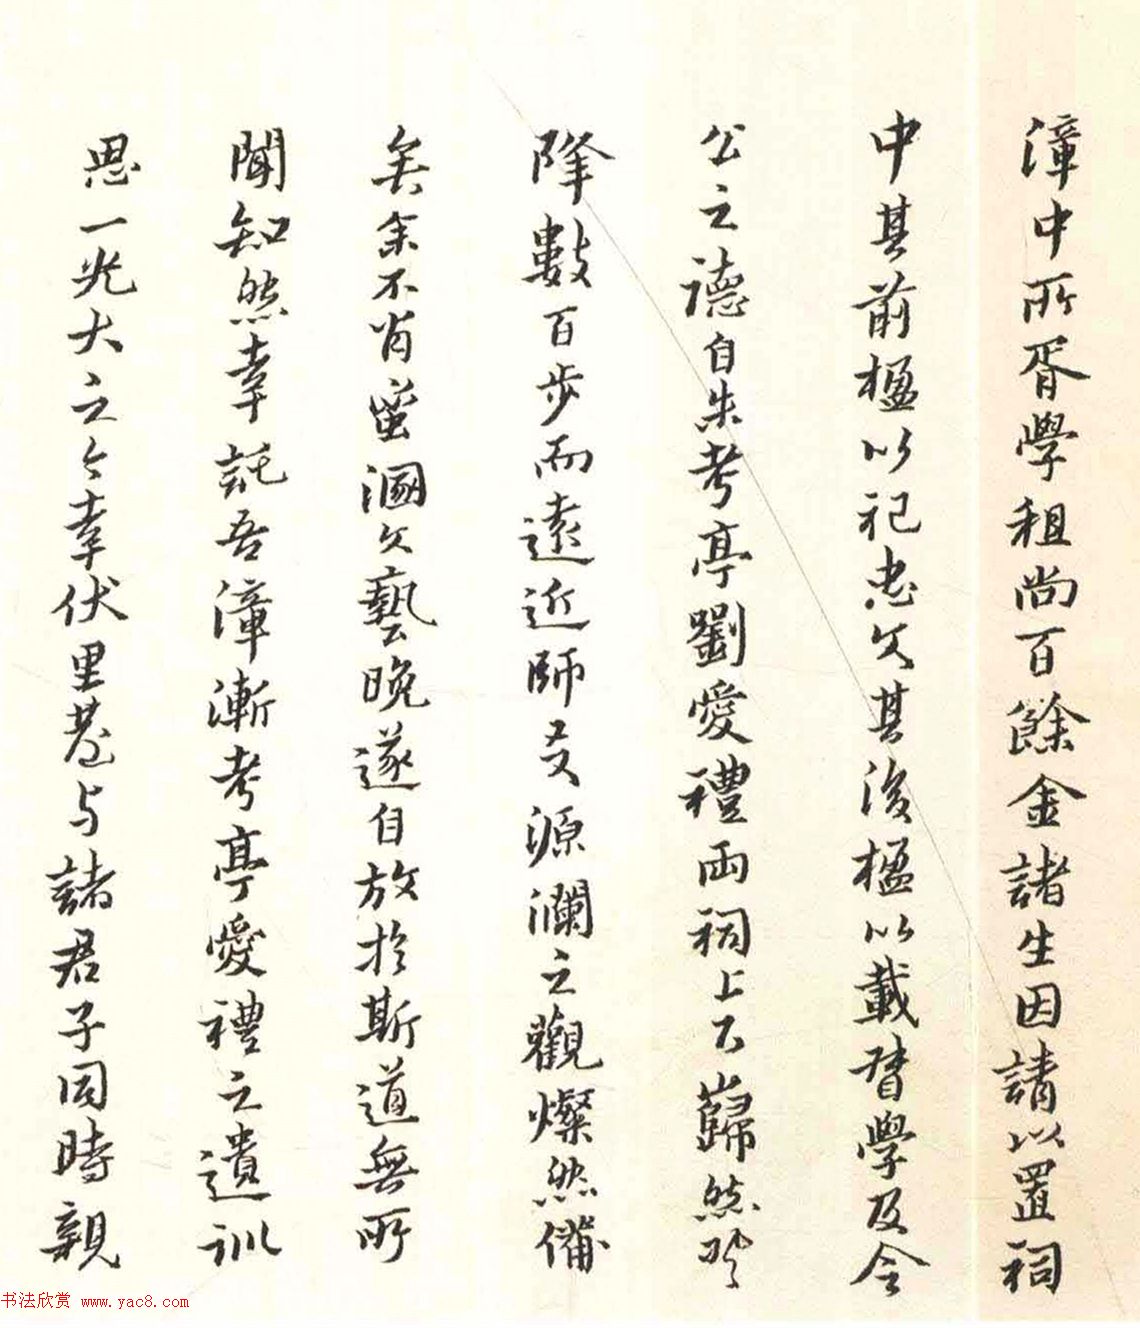 漳中所胥學租尚百餘金諸生因請以置祠
中其前楹以祀忠文其後楹以載督學及令
公之德自朱考亭劉愛禮兩祠上下巋然於
降數百步而遠近師友源瀾之觀燦然備
矣余不肖蚤溷文藝晚遂自放於斯道無所
聞知然幸託吾漳漸考亭愛禮之遺訓
思一光大之今幸伏里墓与諸君子同時親
书法欣赏 www.yac8.com